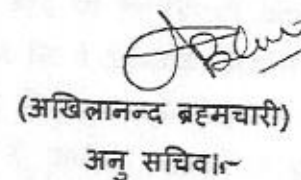 (अखिलानन्द ब्रह्मचारी)
अनु सचिव।~